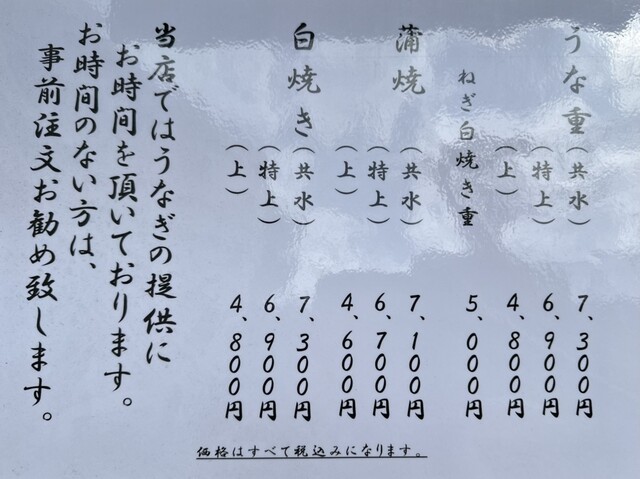 うな重（共水）　7、300円
（特上）　6、900円
（上）　4、800円
ねぎ白焼き重　5、000円
蒲焼（共水）　7、100円
（特上）　6、700円
（上）　4、600円
白焼き（共水）　7、300円
（特上）　6、900円
（上）　4、800円
当店ではうなぎの提供に
お時間を頂いております。
お時間のない方は、
事前注文お勧め致します。
価格はすべて税込みになります。